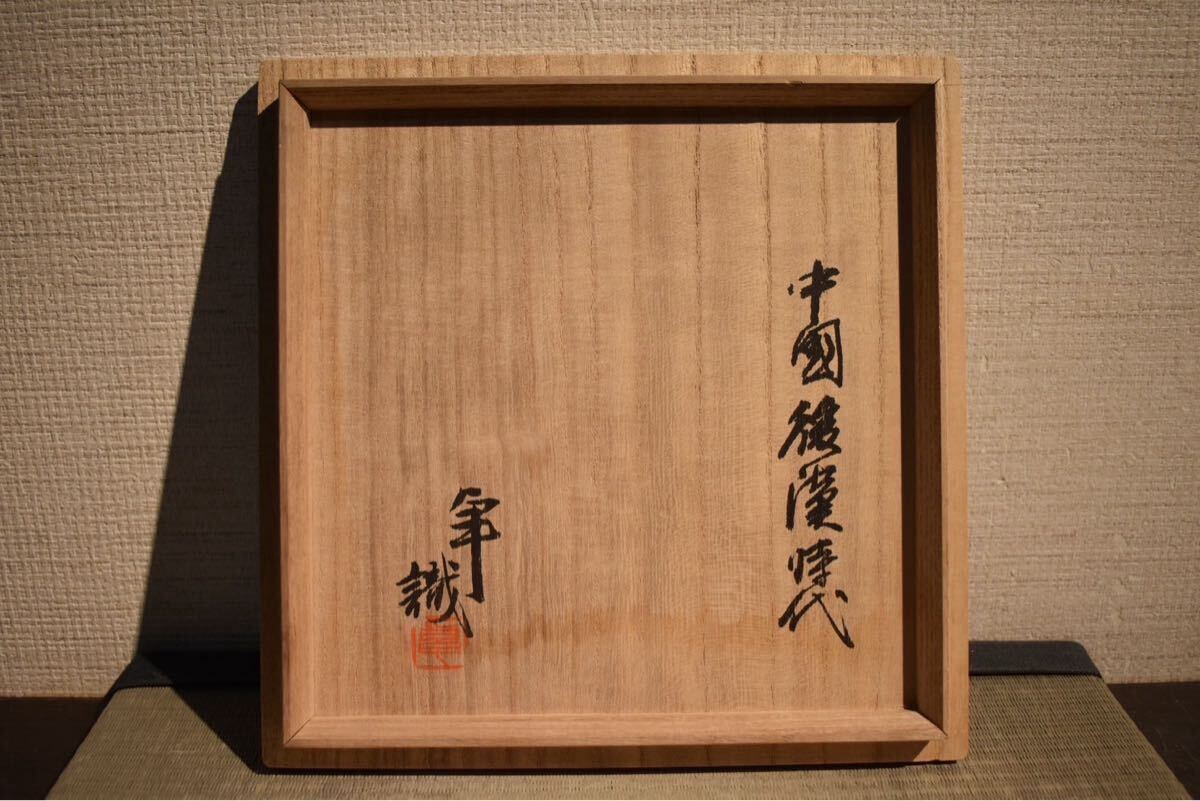 中國後漢時代
識